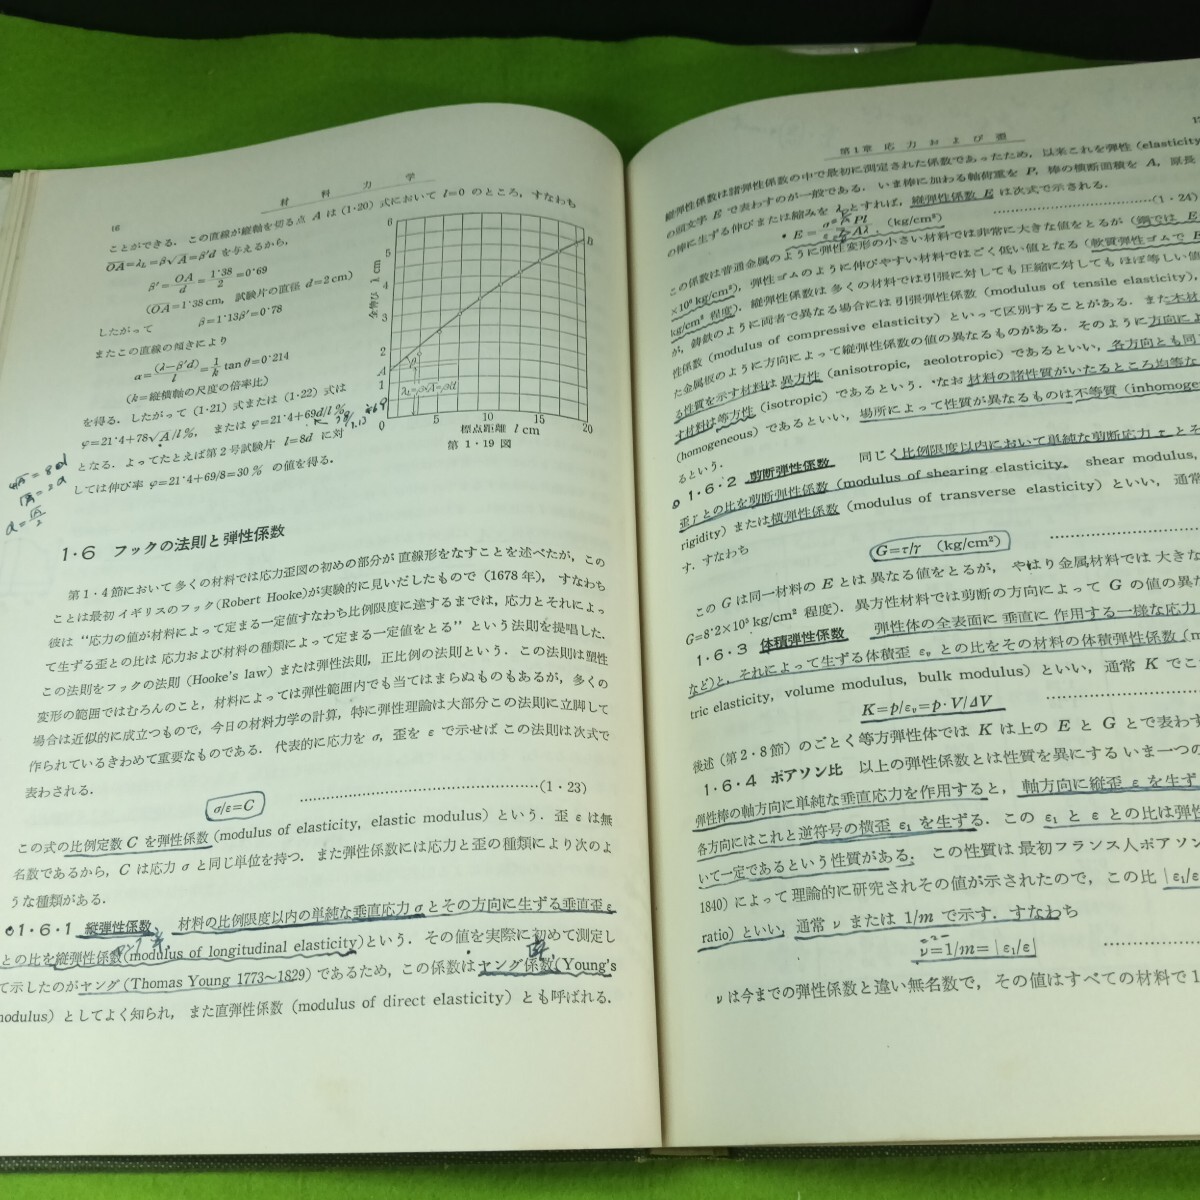 16
材 料 力 学
ことができる．この直線が縦軸を切る点 A は (1・20) 式において l=0 のところ，すなわち
OA=λL=β√A=β'd を与えるから，
β'=OA/d=1·38/2=0·69
(OA=1·38cm, 試験片の直径 d=2cm)
したがって β=1·13β'=0·78
またこの直線の傾きにより
α=(λ−β'd)/l=1/k tanθ=0·214
(k=縦横軸の尺度の倍率比)
を得る．したがって (1・21) 式または (1・22) 式は
φ=21·4+78√A/l%, または φ=21·4+69d/l%
となる．よってたとえば第2号試験片 l=8d に対
しては伸び率 φ=21·4+69/8=30 % の値を得る．
全伸び λ cm
6
5
4
3
2
A
1
0
5
10
15
20
B
標点距離 l cm
第 1・19 図
1・6 フックの法則と弾性係数
第1・4節において多くの材料では応力歪図の初めの部分が直線形をなすことを述べたが，この
ことは最初イギリスのフック(Robert Hooke)が実験的に見いだしたもので (1678年)，すなわち
彼は “応力の値が材料によって定まる一定値すなわち比例限度に達するまでは，応力とそれによっ
て生ずる歪との比は応力および材料の種類によって定まる一定値をとる” という法則を提唱した．
この法則をフックの法則 (Hooke's law) または弾性法則，正比例の法則という．この法則は塑性
変形の範囲ではむろんのこと，材料によっては弾性範囲内でも当てはまらぬものもあるが，多くの
場合は近似的に成立つもので，今日の材料力学の計算，特に弾性理論は大部分この法則に立脚して
作られているきわめて重要なものである．代表的に応力を σ，歪を ε で示せばこの法則は次式で
表わされる．
σ/ε=C ……………………………………(1・23)
この式の比例定数 C を弾性係数 (modulus of elasticity, elastic modulus) という．歪 ε は無
名数であるから，C は応力 σ と同じ単位を持つ．また弾性係数には応力と歪の種類により次のよ
うな種類がある．
1・6・1 縦弾性係数 材料の比例限度以内の単純な垂直応力 σ とその方向に生ずる垂直歪 ε
との比を縦弾性係数 (modulus of longitudinal elasticity)という．その値を実際に初めて測定し
て示したのがヤング (Thomas Young 1773〜1829) であるため，この係数はヤング係数 (Young's
modulus) としてよく知られ，また直弾性係数 (modulus of direct elasticity) とも呼ばれる．
第1章 応 力 お よ び 歪
縦弾性係数は諸弾性係数の中で最初に測定された係数であったため，以来これを弾性 (elasticity
の頭文字 E で表わすのが一般である．いま棒に加わる軸荷重を P，棒の横断面積を A，原長
の棒に生ずる伸びまたは縮みを λ とすれば，縦弾性係数 E は次式で示される．
E=σ/ε=Pl/Aλ (kg/cm²) ……………………(1・24)
この係数は普通金属のように弾性変形の小さい材料では非常に大きな値をとるが (鋼では E
×10⁶ kg/cm²)，弾性ゴムのように伸びやすい材料ではごく低い値となる (軟質弾性ゴムで E
kg/cm² 程度)．縦弾性係数は多くの材料では引張に対しても圧縮に対してもほぼ等しい値
が，鋳鉄のように両者で異なる場合には引張弾性係数 (modulus of tensile elasticity),
性係数 (modulus of compressive elasticity) といって区別することがある．また木材
た金属板のように方向によって縦弾性係数の値の異なるものがある．そのように方向によ
る性質を示す材料は異方性 (anisotropic, aeolotropic) であるといい，各方向とも同
す材料は等方性 (isotropic) であるという．なお材料の諸性質がいたるところ均等な
(homogeneous) であるといい，場所によって性質が異なるものは不等質 (inhomog
るという．
1・6・2 剪断弾性係数 同じく比例限度以内において単純な剪断応力 τ とそ
歪 γ との比を剪断弾性係数 (modulus of shearing elasticity, shear modulus,
rigidity) または横弾性係数 (modulus of transverse elasticity) といい，通常
す．すなわち
G=τ/γ (kg/cm²) ……………
この G は同一材料の E とは異なる値をとるが，やはり金属材料では大きな
G=8·2×10⁵ kg/cm² 程度)．異方性材料では剪断の方向によって G の値の異な
1・6・3 体積弾性係数 弾性体の全表面に垂直に作用する一様な応力
など)と，それによって生ずる体積歪 εv との比をその材料の体積弾性係数 (m
tric elasticity, volume modulus, bulk modulus) といい，通常 K でこ
K=p/εv=p·V/ΔV ……………
後述 (第2・8節) のごとく等方弾性体では K は上の E と G とで表わす
1・6・4 ポアソン比 以上の弾性係数とは性質を異にするいま一つの
弾性棒の軸方向に単純な垂直応力を作用すると，軸方向に縦歪 ε を生ず
各方向にはこれと逆符号の横歪 ε₁ を生ずる．この ε₁ と ε との比は弾性
いて一定であるという性質がある．この性質は最初フランス人ポアソン
1840) によって理論的に研究されその値が示されたので，この比 |ε₁/ε
ratio) といい，通常 ν または 1/m で示す．すなわち
ν=1/m=|ε₁/ε| ……………
ν は今までの弾性係数と違い無名数で，その値はすべての材料で 1